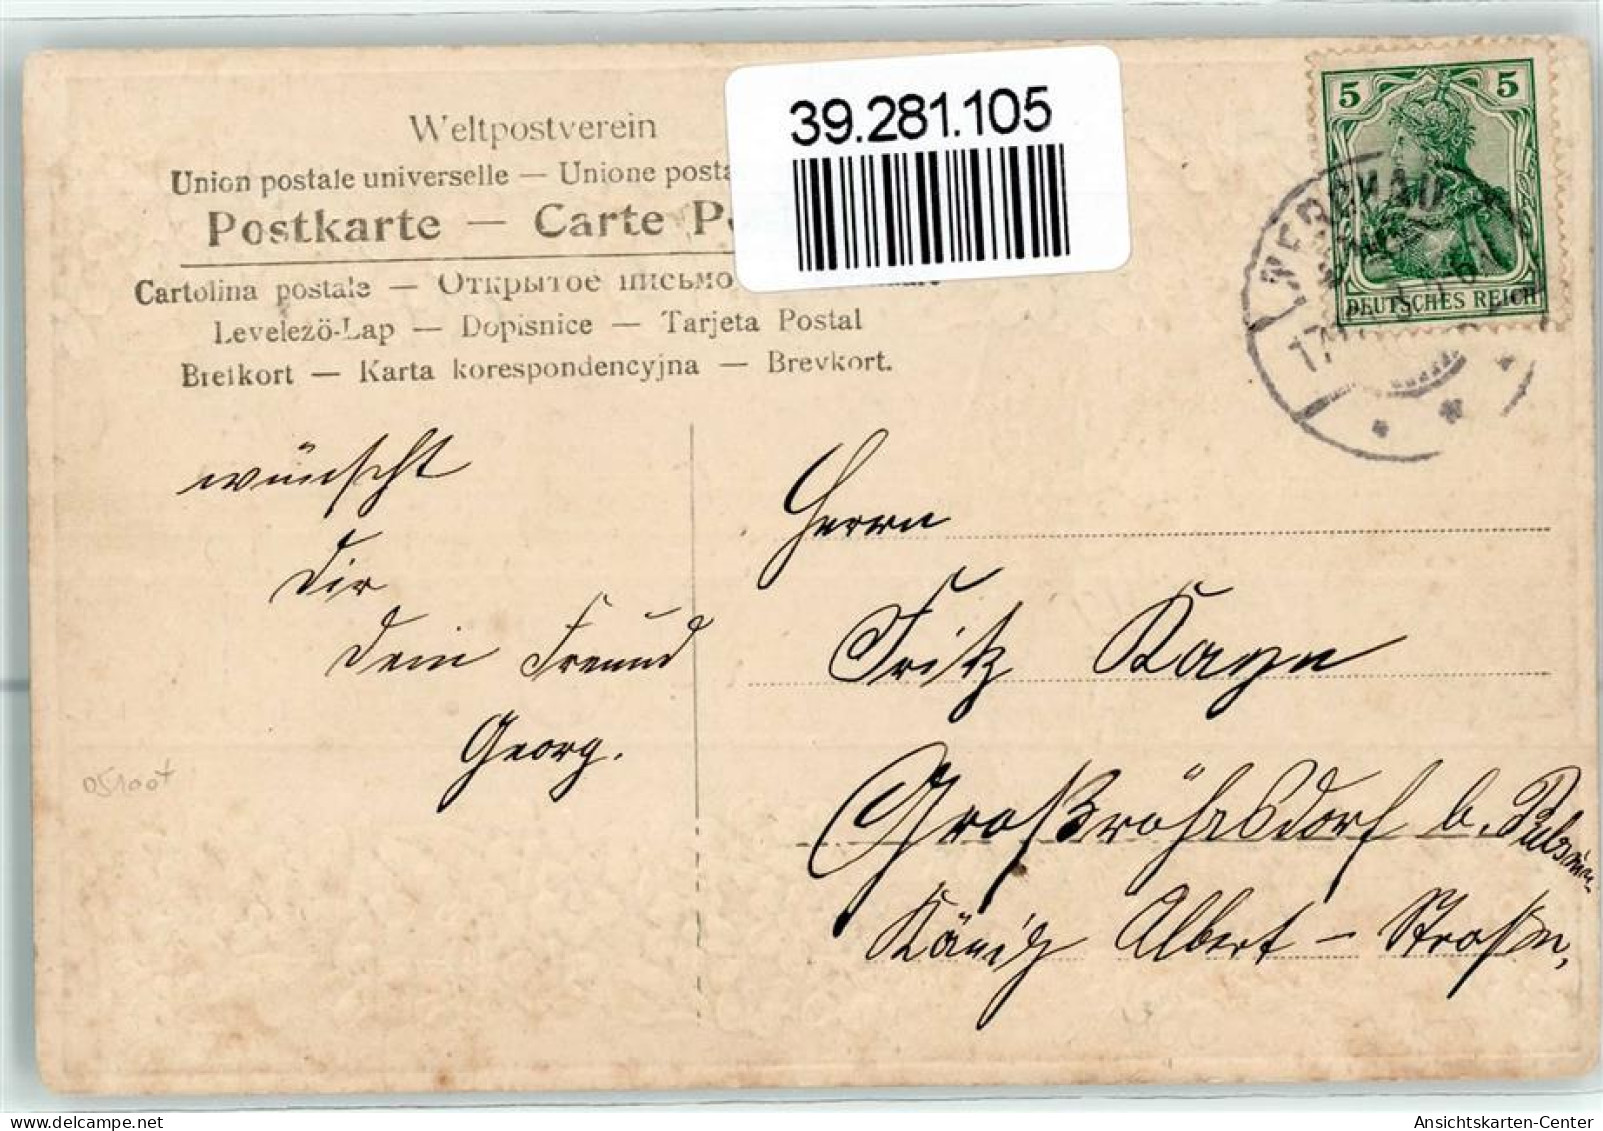 Weltpostverein
Union postale universelle — Unione posta
Postkarte — Carte Po
Cartolina postale — Открытое письмо
Levelező-Lap — Dopisnice — Tarjeta Postal
Brefkort — Karta korespondencyjna — Brevkort.
39.281.105
5 5
DEUTSCHES REICH
WERDAU
17
wünscht
Dir
Dein Freund
Georg.
05100+
Herrn
Fritz Kage
Großröhrsdorf b. Pulsnitz
König Albert – Straße,
Ansichtskarten-Center